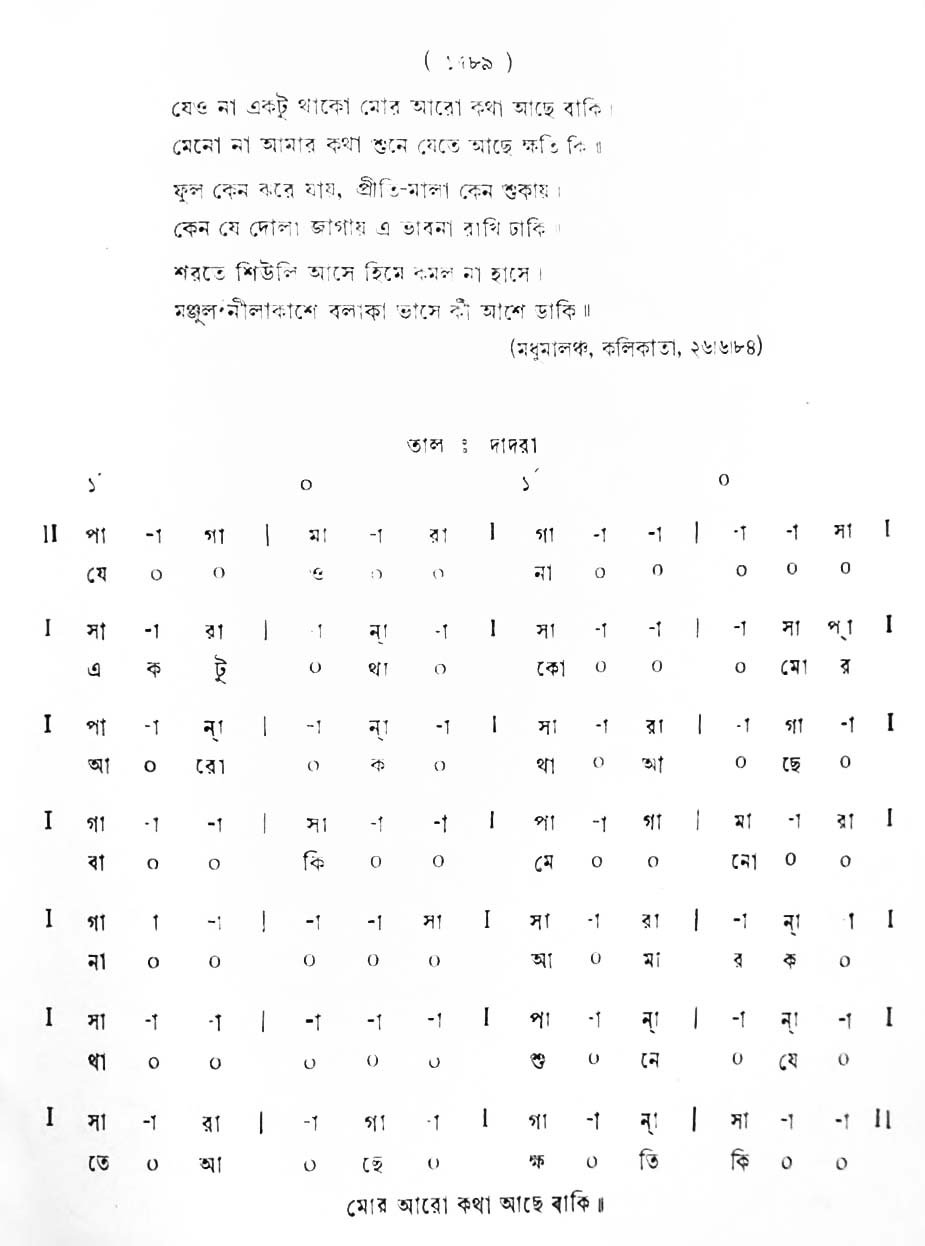 ( ১৪৮৯ )
যেও না একটু থাকো মোর আরো কথা আছে বাকি।
মেনো না আমার কথা শুনে যেতে আছে ক্ষতি কি॥
ফুল কেন ঝরে যায়, প্রীতি-মালা কেন শুকায়।
কেন যে দোলা জাগায় এ ভাবনা রাখি ঢাকি।
শরতে শিউলি আসে হিমে কমল না হাসে।
মঞ্জুল নীলাকাশে বলাকা ভাসে কী আশে ডাকি॥
(মধুমালঞ্চ, কলিকাতা, ২৬।৬।৮৪)
তাল ঃ দাদরা
১´ ০ ১´ ০
II পা -া গা | মা -া রা I গা -া -া | -া -া সা I
যে ০ ০ ও ০ ০ না ০ ০ ০ ০ ০
I সা -া রা | -া ন্া -া I সা -া -া | -া সা প্া I
এ ক টু ০ থা ০ কো ০ ০ ০ মো র
I পা -া ন্া | -া ন্া -া I সা -া রা | -া গা -া I
আ ০ রো ০ ক ০ থা ০ আ ০ ছে ০
I গা -া -া | সা -া -া I পা -া গা | মা -া রা I
বা ০ ০ কি ০ ০ মে ০ ০ নো ০ ০
I গা া -া | -া -া সা I সা -া রা | -া ন্া া I
না ০ ০ ০ ০ ০ আ ০ মা র ক ০
I সা -া -া | -া -া -া I পা -া ন্া | -া ন্া -া I
থা ০ ০ ০ ০ ০ শু ০ নে ০ যে ০
I সা -া রা | -া গা -া I গা -া ন্া | সা -া -া II
তে ০ আ ০ ছে ০ ক্ষ ০ তি কি ০ ০
মোর আরো কথা আছে বাকি॥